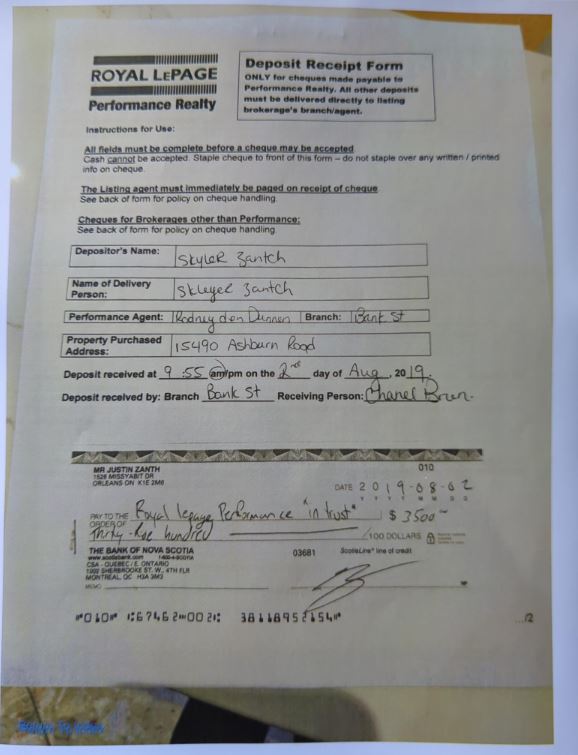 ROYAL LEPAGE
Performance Realty
Deposit Receipt Form
ONLY for cheques made payable to
Performance Realty. All other deposits
must be delivered directly to listing
brokerage's branch/agent.
Instructions for Use:
All fields must be complete before a cheque may be accepted
Cash cannot be accepted. Staple cheque to front of this form – do not staple over any written / printed
info on cheque.
The Listing agent must immediately be paged on receipt of cheque
See back of form for policy on cheque handling.
Cheques for Brokerages other than Performance:
See back of form for policy on cheque handling.
Depositor's Name: Skyler Zantch
Name of Delivery
Person: Skleyer Zantch
Performance Agent: Rodney den Dunnen Branch: Bank St
Property Purchased
Address: 15490 Ashburn Road
Deposit received at 9:55 am/pm on the 2nd day of Aug, 2019.
Deposit received by: Branch Bank St Receiving Person: Chanel
MR JUSTIN ZANTH
1526 MISSYABIT DR
ORLEANS ON K1E 2M6
010
DATE 2019-08-02
Y Y Y Y M M D D
PAY TO THE
ORDER OF Royal lepage Performance "in trust" $ 3500
hundred /100 DOLLARS
THE BANK OF NOVA SCOTIA
www.scotiabank.com 1-800-4-SCOTIA
CSA - QUEBEC / E. ONTARIO
1002 SHERBROOKE ST. W., 4TH FLR
MONTREAL, QC H3A 3M3
03681
ScotiaLine® line of credit
MEMO
⑈010⑈ ⑆67462⑉002⑆ 38118952154⑈
...12